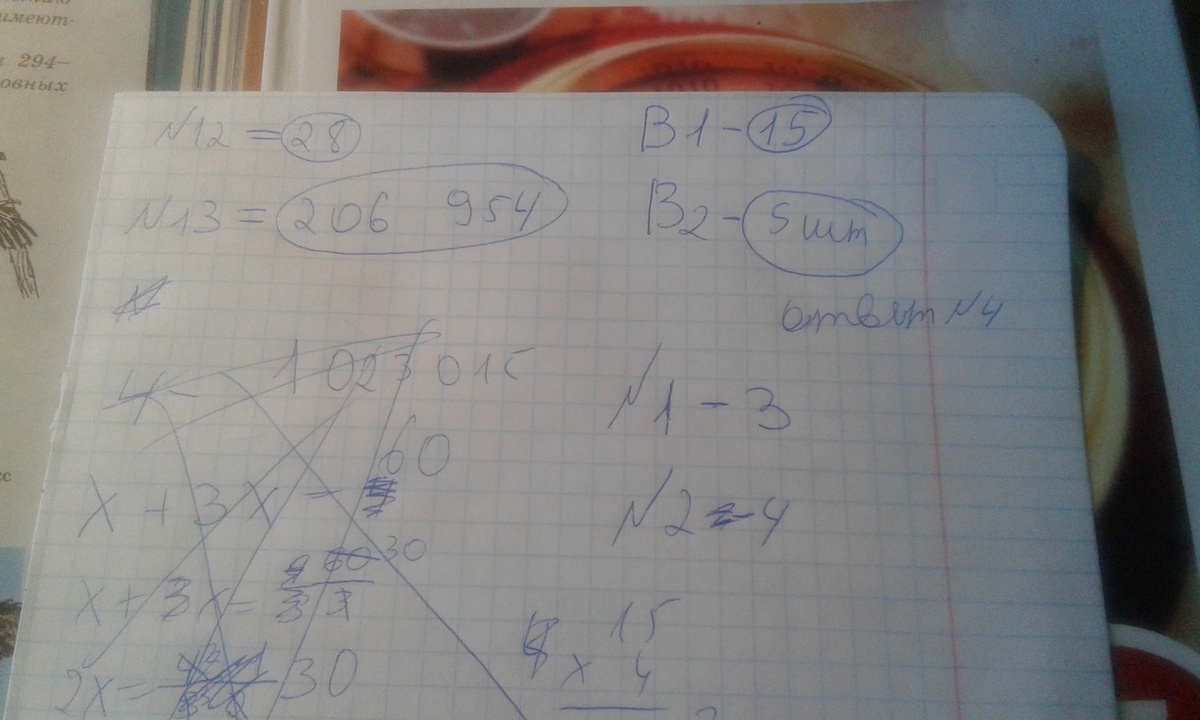 имеют-
294–
овных
N12 = 28
N13 = 206 954
B1 - 15
B2 - 5 шт
ответ N4
N1 - 3
N2 - 4
4 - 1 023 015
x + 3x = 60
x + 3x = 30
2x = 30
15
x 4